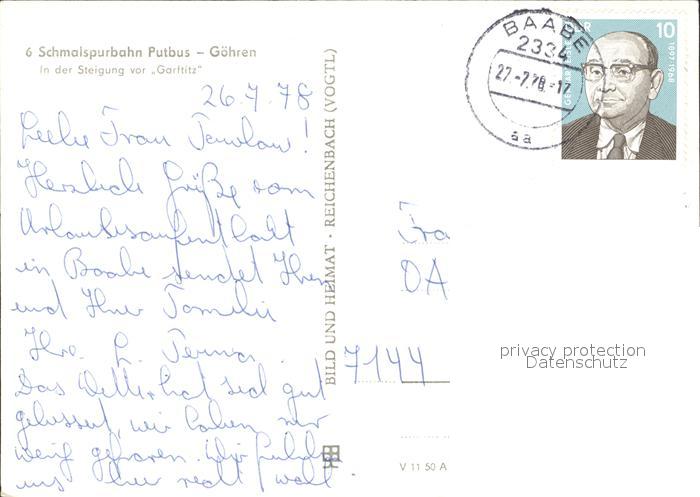 6 Schmalspurbahn Putbus – Göhren
In der Steigung vor „Garftitz"
26.7.78
Liebe Frau !
Herzliche Grüße vom
Urlaubsaufenthalt
in Baabe sendet Ihnen
und Ihrer Familie
Ihre L.
Das Wetter hat sich gut
wir haben nur
wenig gefroren. Wir fühlen
uns hier recht wohl
BILD UND HEIMAT · REICHENBACH (VOGTL)
BAABE
2334
27.-7.78.-17
aa
DDR
10
1897-1968
Fra
DA
7144
privacy protection
Datenschutz
V 11 50 A